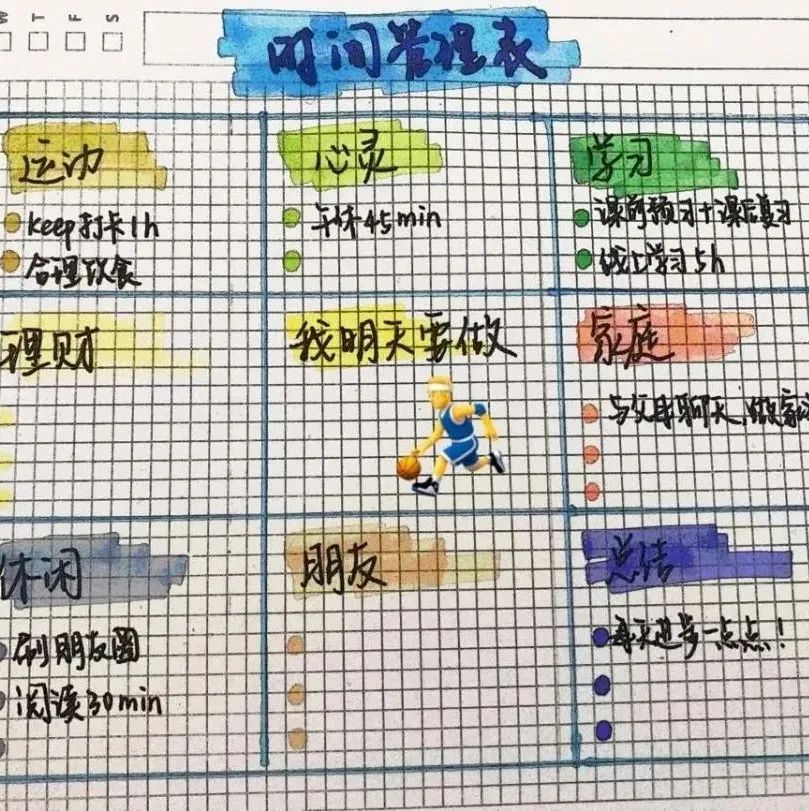 W T F S
时间管理表
运动
keep打卡1h
合理饮食
心灵
午休45min
学习
课前预习+课后复习
线上学习5h
理财
我明天要做
家庭
与父母聊天,做家
休闲
刷朋友圈
阅读30min
朋友
总结
每天进步一点点!